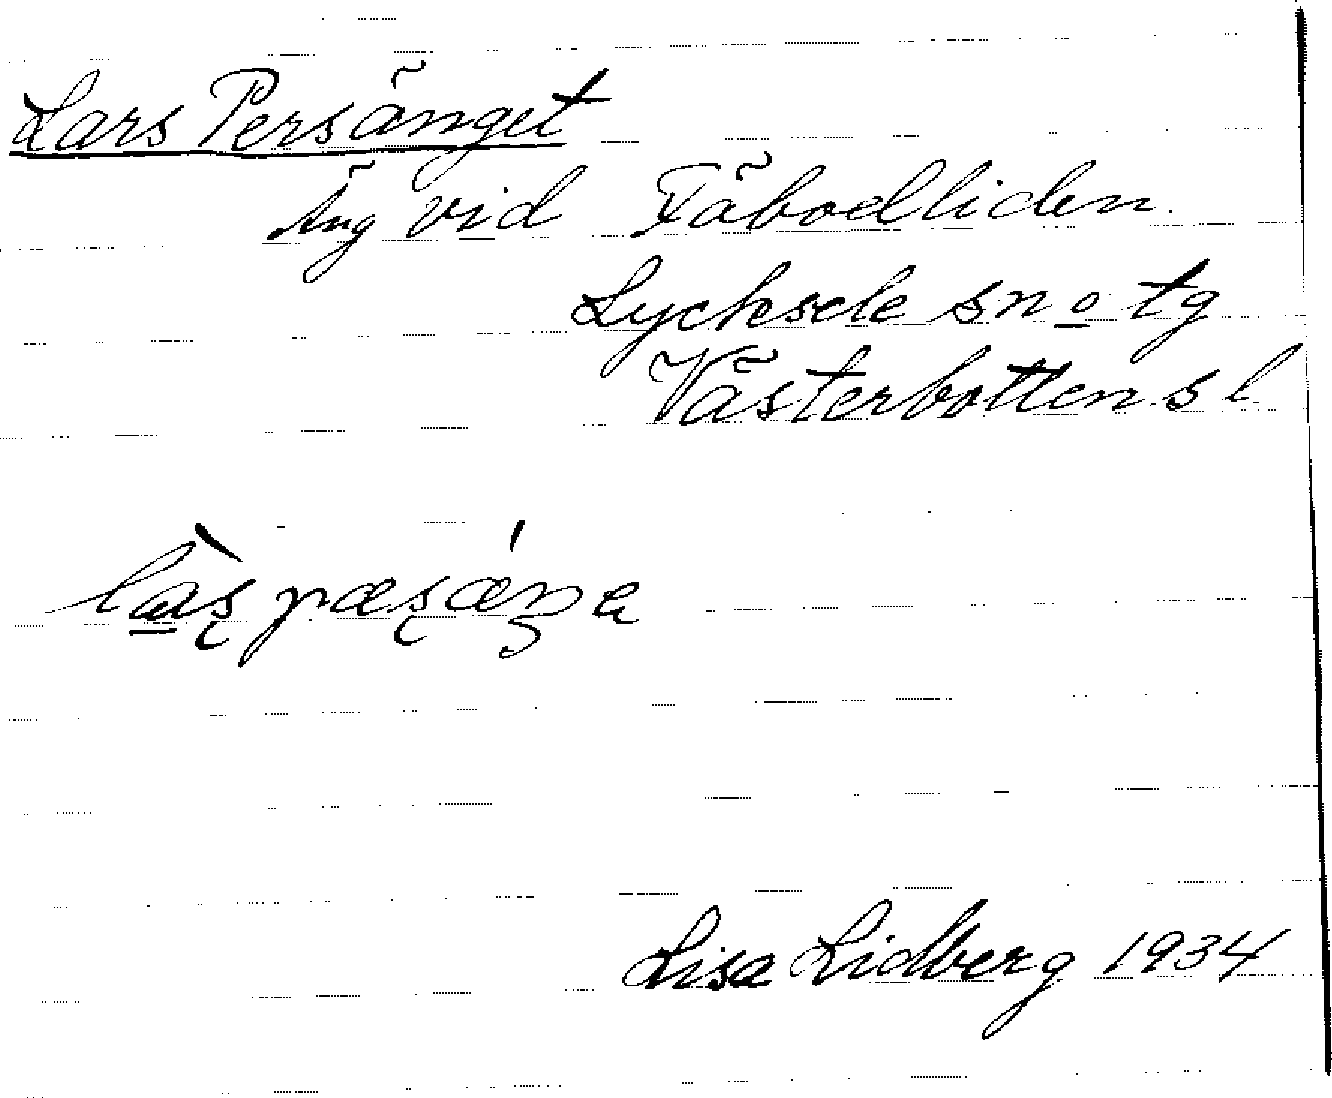 Lars Persänget
Äng vid Fäbodliden.
Lycksele sn o tg
Västerbottens l
Lisa Lidberg 1934